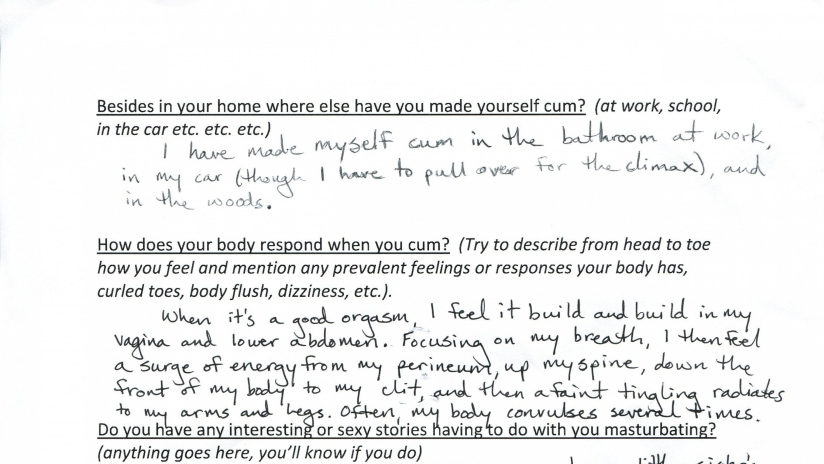 Besides in your home where else have you made yourself cum? (at work, school,
in the car etc. etc. etc.)
I have made myself cum in the bathroom at work,
in my car (though I have to pull over for the climax), and
in the woods.
How does your body respond when you cum? (Try to describe from head to toe
how you feel and mention any prevalent feelings or responses your body has,
curled toes, body flush, dizziness, etc.).
When it's a good orgasm, I feel it build and build in my
vagina and lower abdomen. Focusing on my breath, I then feel
a surge of energy from my perineum, up my spine, down the
front of my body to my clit, and then a faint tingling radiates
to my arms and legs. Often, my body convulses several times.
Do you have any interesting or sexy stories having to do with you masturbating?
(anything goes here, you'll know if you do)